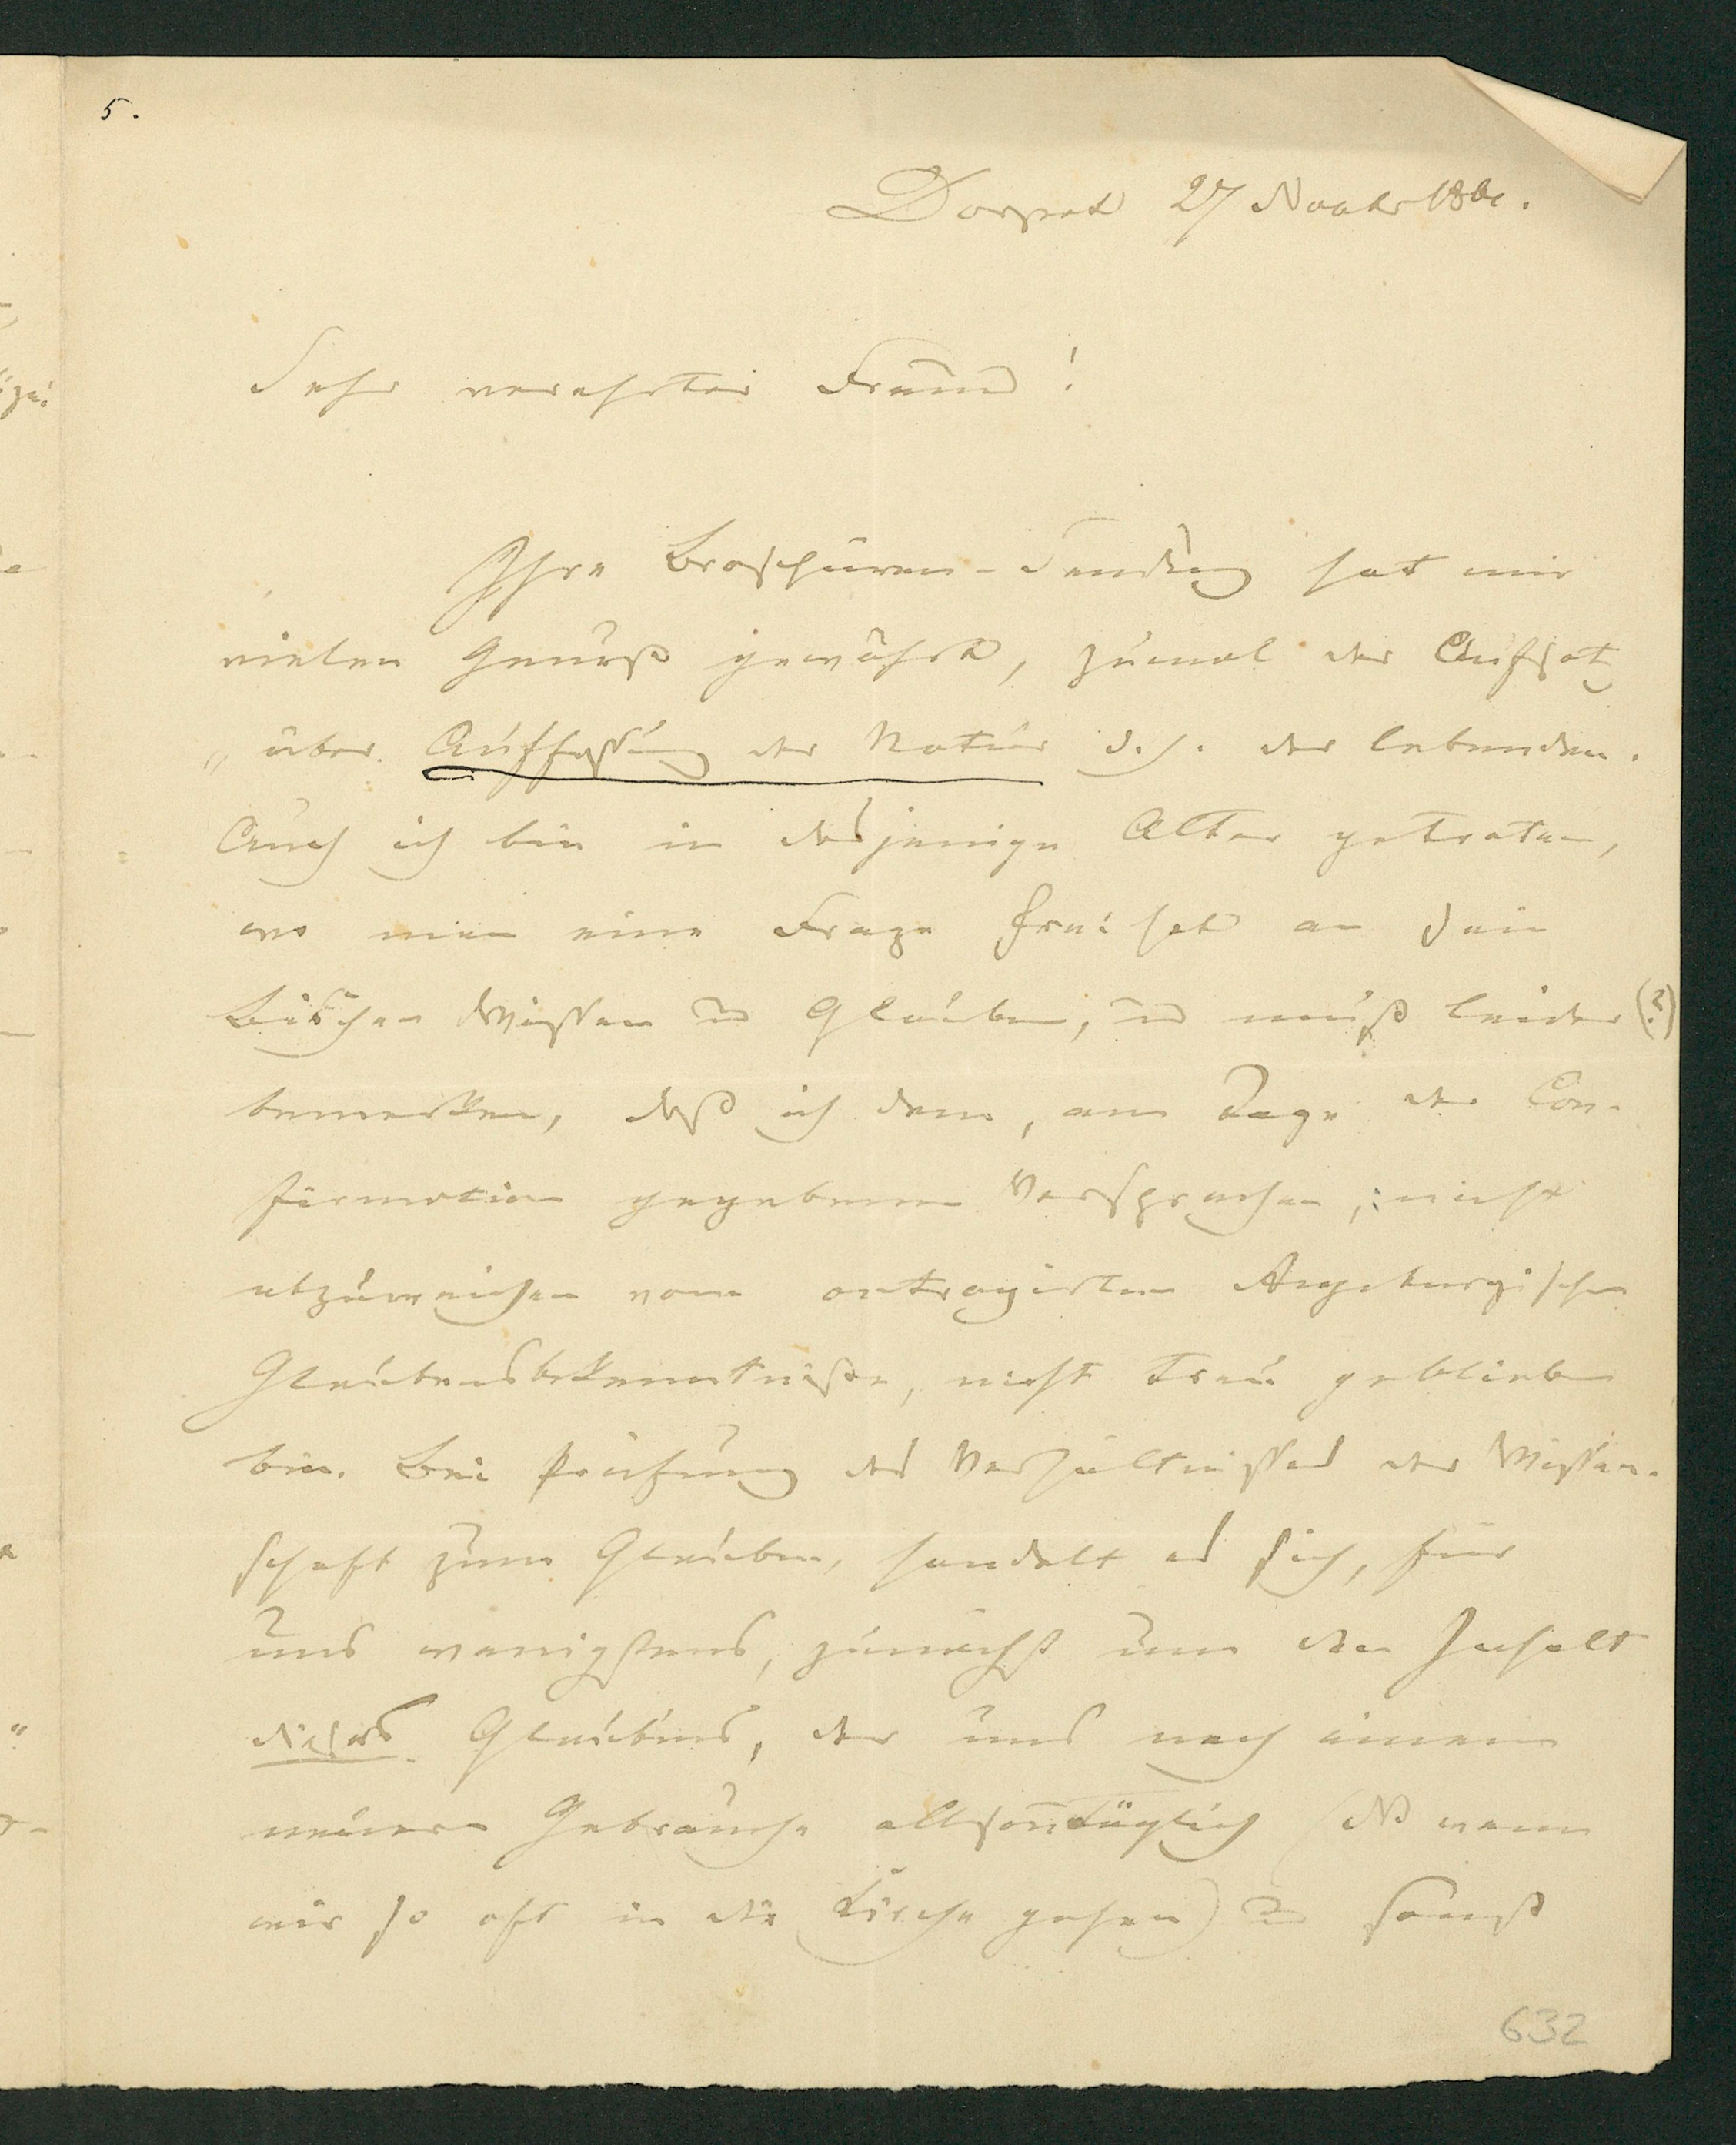 5.
Dorpat 27 Novbr 186
Sehr verehrter Freund!
Ihre Broschüren-Sendung hat mir
vielen Genuß gewährt, zumal der Aufsatz
„über Auffassung der Natur d. h. der lebenden.
Auch ich bin in dasjenige Alter getreten,
wo man eine Frage frei hat an sein
Bischen Wissen u Glauben, u muß leider (?)
bemerken, daß ich dem, am Tage der Con-
firmation gegebenen Versprechen, nicht
abzuweichen vom octroyirten Augsburgischen
Glaubensbekenntnisse, nicht treu geblieben
bin. Bei Prüfung des Verhältnisses der Wissen-
schaft zum Glauben, handelt es sich, für
uns wenigstens, zunächst um den Inhalt
dieses Glaubens, der uns nach einem
neueren Gebrauche allsontäglich (NB wenn
wir so oft in die Kirche gehen) u sonst
632